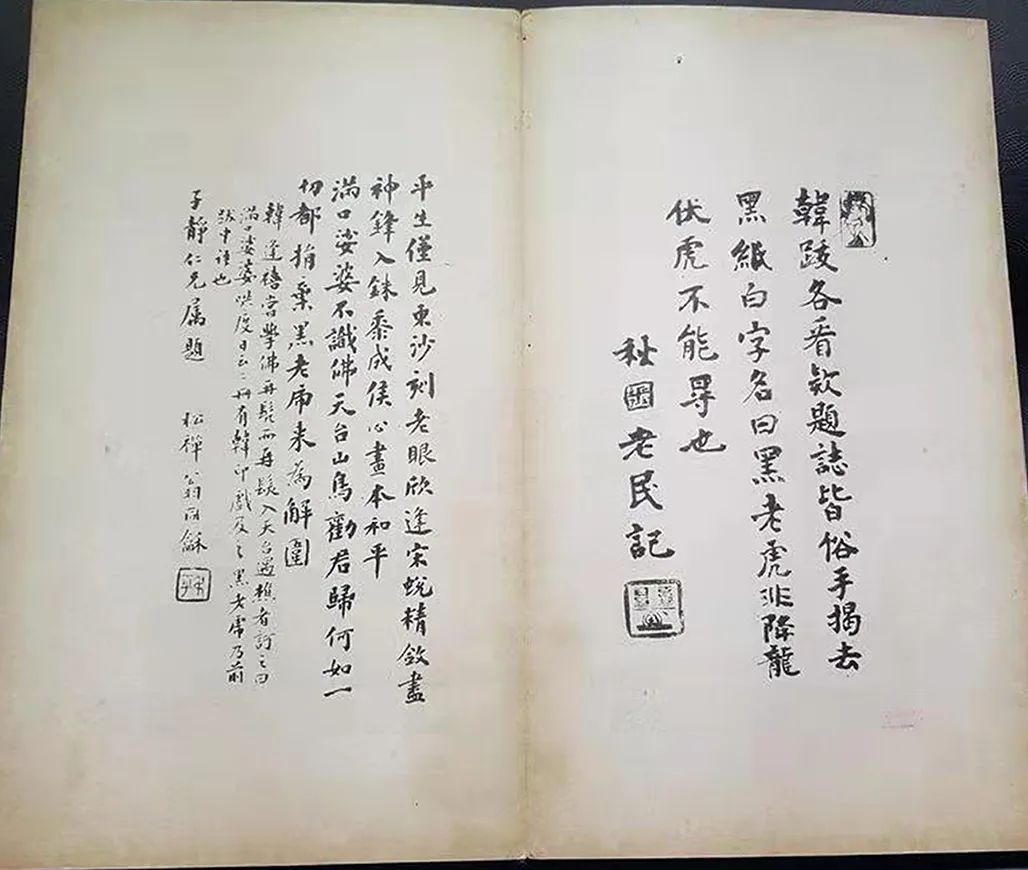 韓跋各看款題誌皆俗手揭去
黑紙白字名曰黑老虎非降龍
伏虎不能尋也
秋圃老民記
平生僅見東沙刻老眼欣逢宋蛻精斂盡
神鋒入銖黍成侯心畫本和平
滿口娑婆不識佛天台山鳥勸君歸何如一
切都捐棄黑老虎来為解圍
韓逢禧嘗學佛再髡而再髮入天台遇樵者訶之曰
滿口娑婆哄度日云云册有韓印戲及之黑老虎乃前
跋中語也
子靜仁兄属題
松禪翁同龢